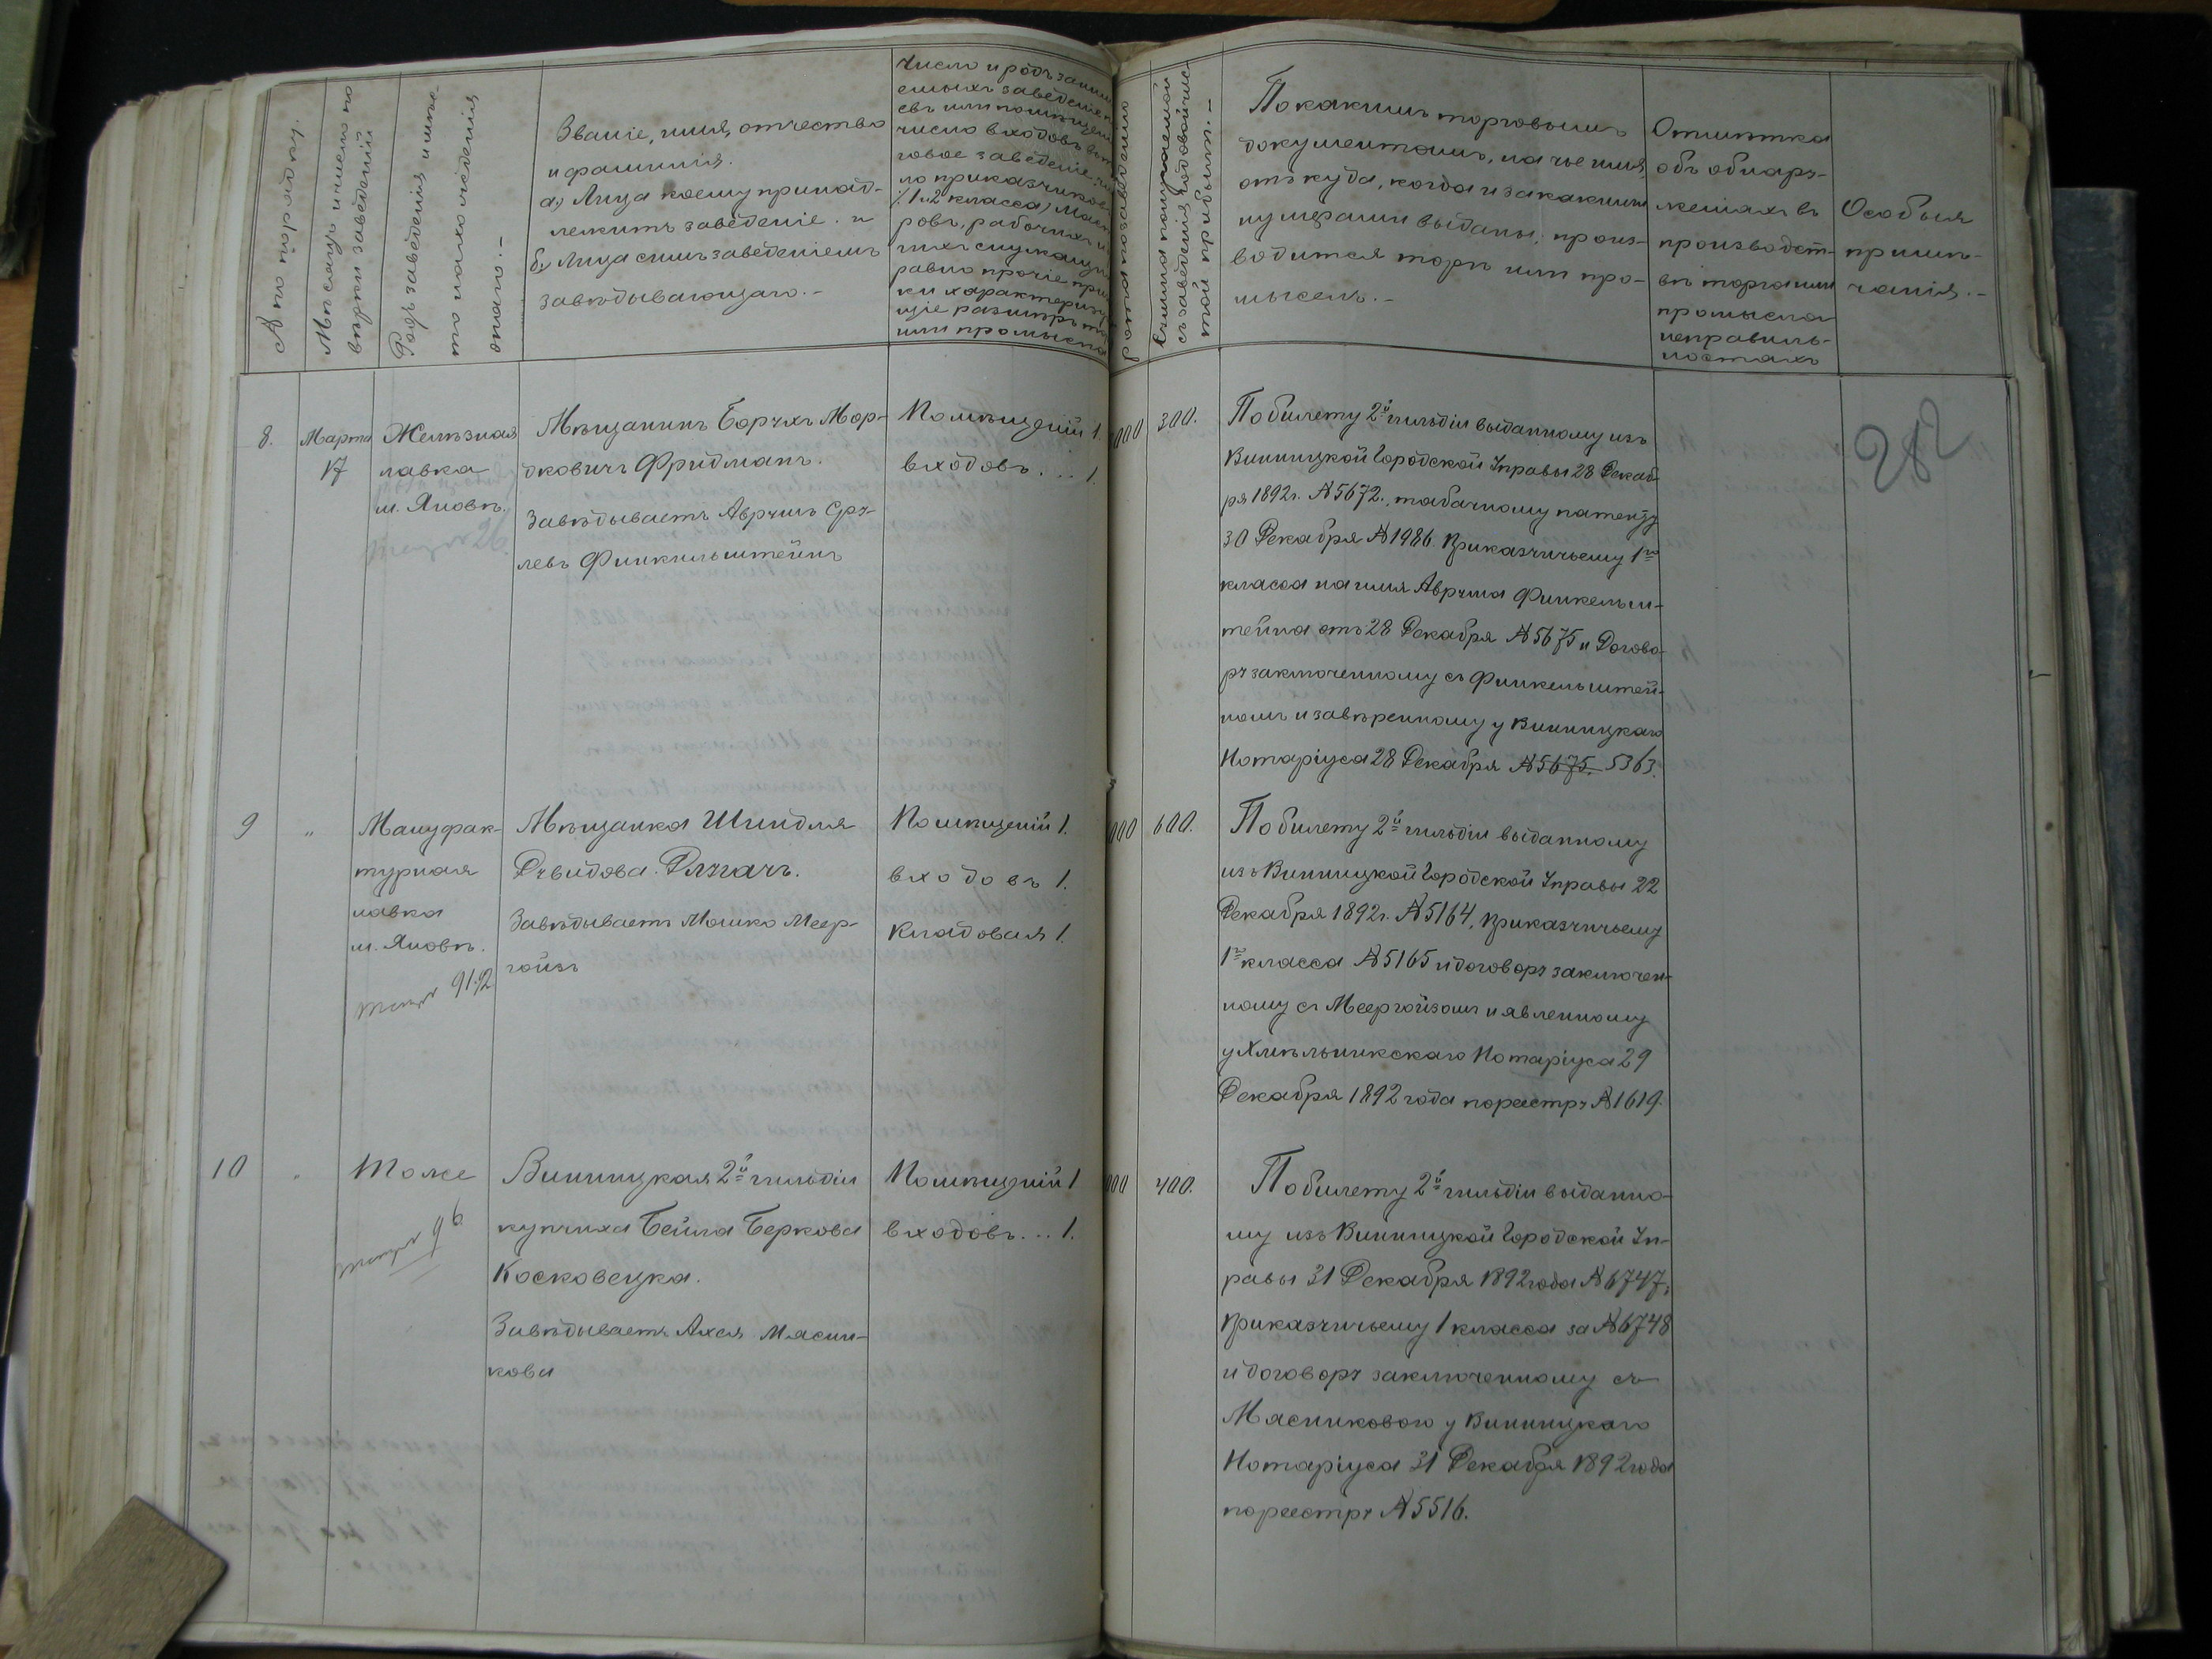 № по порядку.
Мѣсяцъ и число по
вѣрки заведеній
Родъ заведенія и мѣс
то нахожденія
онаго. -
Званіе, имя, отчество
и фамилія.
а) Лица коему принад-
лежитъ заведеніе. и
б) Лица симъ заведеніемъ
завѣдывающаго. -
Число и родъ заним
емыхъ заведеніе
евъ или помѣщен
число входовъ въ
говое заведеніе,
ло приказчиков
(1 и 2 класса)
ровъ, рабочихъ и
чихъ служащи
равно прочіе при
ки характеризу
щіе размѣръ
или промысла
Сумма получаемой
съ заведенія годовой чис-
той прибыли. -
По какимъ торговымъ
документамъ, на чье имя,
отъ куда, когда и за какими
нумерами выданы, произ-
водится торгъ или про-
мыселъ. -
Отмѣтка
объ обнару-
женіяхъ въ
производст-
вѣ торга или
промысла
неправиль-
ностяхъ
Особыя
примѣ-
чанія. -
282
8.
Марта
17
Желѣзная
лавка
м. Яновѣ.
26
Мѣщанинъ Борухъ Мор-
дковичъ Фридманъ.
Завѣдываетъ Аврумъ Сру-
левъ Финкильштейнъ
Помѣщеній 1.
входовъ... 1.
000
300.
По билету 2й гильдіи выданному изъ
Винницкой Городской Управы 28 Декаб-
ря 1892г. №5672., табачному патенту
30 Декабря №1986. Приказчичьему 1го
класса на имя Аврума Финкельш-
тейна отъ 28 Декабря №5675 и Догово-
ру заключенному съ Финкельштей-
номъ и завѣренному у Винницкаго
Нотаріуса 28 Декабря №5675. 5363.
9
"
Мануфак-
турная
лавка
м. Яновѣ.
91.92
Мѣщанка Шиндля
Дувидова Длугачъ.
Завѣдываетъ Мошко Меер-
гойзъ
Помѣщеній 1.
входовъ 1.
Кладовая 1.
000
600.
По билету 2й гильдіи выданному
изъ Винницкой Городской Управы 22
Декабря 1892г. №5164, приказчичьему
1го класса №5165 и договору заключен-
ному съ Меергойзомъ и явленному
у Хмѣльникскаго Нотаріуса 29
Декабря 1892 года по реестру №1619.
10
"
Тоже
96
Винницкая 2й гильдіи
купчиха Бейла Беркова
Косковецка.
Завѣдываетъ Ахся Мясни-
кова
Помѣщеній 1
входовъ... 1.
000
400.
По билету 2й гильдіи выданно-
му изъ Винницкой Городской Уп-
равы 31 Декабря 1892 года №6747,
Приказчичьему 1 класса за №6748
и договору заключенному съ
Мясниковою у Винницкаго
Нотаріуса 31 Декабря 1892 года
по реестру №5516.